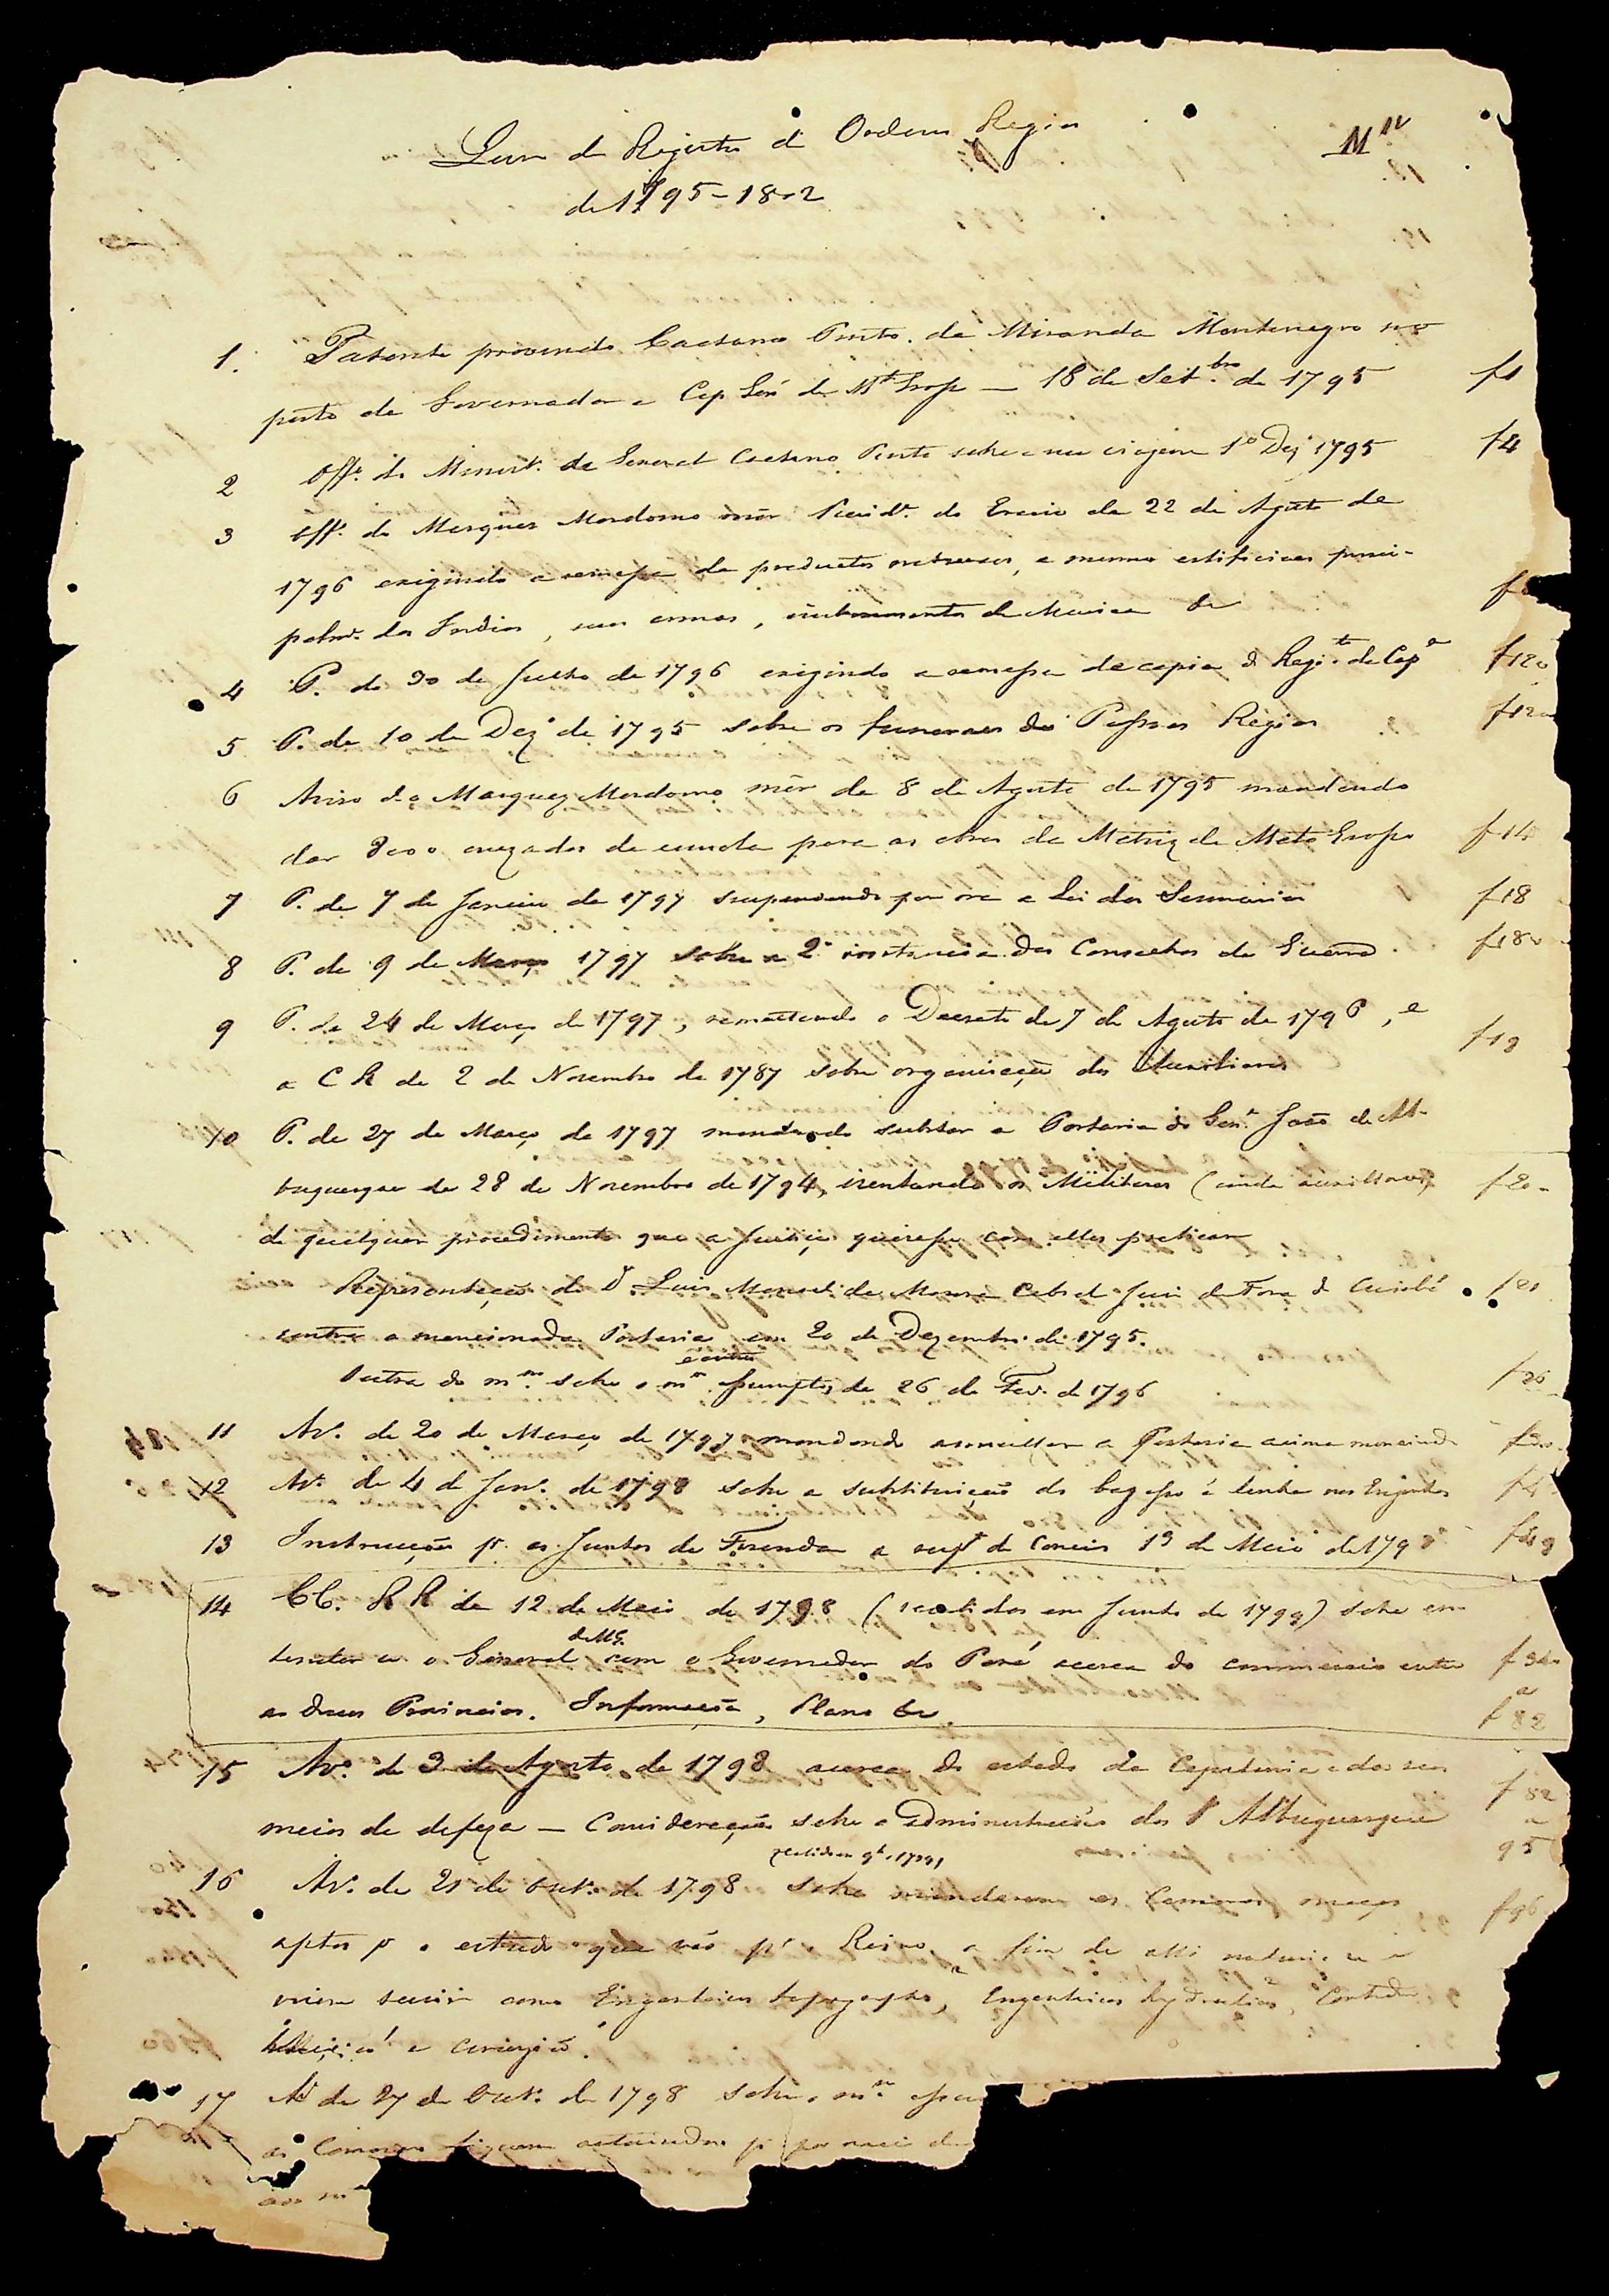 Livro de Registro de Ordens Regias
de 1795 - 1802
1. Patente provendo Caetano Pinto de Miranda Montenegro no
posto de Governador e Cap Gen de Mt Grosso — 18 de Set.bro de 1795 f1
2 Off.º do Minist.º ao General Caetano Pinto sobre a sua viagem 1º Dez 1795 f4
3 Off.º do Marques Mordomo mór Presid.e do Erario de 22 de Agosto de
1796 exigindo a remessa de productos naturaes, e mesmo artificiaes princi-
palm.e dos Indios, suas armas, instrumentos de Musica &
4 P. de 30 de Julho de 1796 exigindo a remessa de copia do Regi.to da Cap.a f12v
5 P. de 10 de Dez.º de 1795 sobre os funeraes das Pessoas Regias f12v
6 Aviso do Marquez Mordomo mór de 8 de Agosto de 1795 mandando
dar 8000 cruzados de esmola para as obras da Matriz de Mato Grosso f14
7 P. de 7 de Janeiro de 1797 suspendendo por ora a Lei das Sesmarias f18
8 P. de 9 de Março 1797 sobre a 2ª instancia dos Conselhos de Guerra. f18v
9 P. de 24 de Março de 1797, remettendo o Decreto de 7 de Agosto de 1796, e
a C R de 2 de Novembro de 1787 sobre organisação dos Auxiliares f19
10 P. de 27 de Março de 1797 mandando subster a Portaria do Gen.l João de Al-
buquerque de 28 de Novembro de 1794, isentando os Militares (ainda auxiliares)
de qualquer procedimento que a Justiça quizesse com elles praticar f20
Representação do Dr Luis Manoel de Moura Cabral Juiz de Fora de Cuiabá f21
contra a mencionada Portaria em 20 de Dezembro de 1795.
Outra do m.mo sobre o m.mo e outros assumptos, de 26 de Fev. de 1796 f26
11 Av.º de 20 de Março de 1797 mandando annullar a Portaria acima mencionada
12 Av.º de 4 de Jan.º de 1798 sobre a substituição do bagasso á lenha nos Engenhos
13 Instrucção p.ª as Juntas de Fazenda a resp.to de Correios 13 de Maio de 1798 f49
14 CC. RR de 12 de Maio de 1798 (recebidas em Junho de 1799) sobre en-
tender-se o General de MG. com o Governador do Pará acerca do commercio entre
as duas Provincias. Informação, Plano &c. a f82
15 Av.º de 3 de Agosto de 1798 acerca do estado da Capitania e dos seus
meios de defeza — Considerações sobre a administração dos Albuquerques f82 a 95
16 Av.º de 21 de Out.º de 1798 sobre mandarem as Camaras moços
aptos p.ª o estudo que vão p.ª o Reino a fim de alli f96
virem servir como Engenheiros topographos, Engenheiros hydraulicos, Contador
Medico e cirurgião.
17 Av de 27 de Out.º de 1798 sobre o m.mo
as Camaras fiquem autorisadas p.ª
aos m